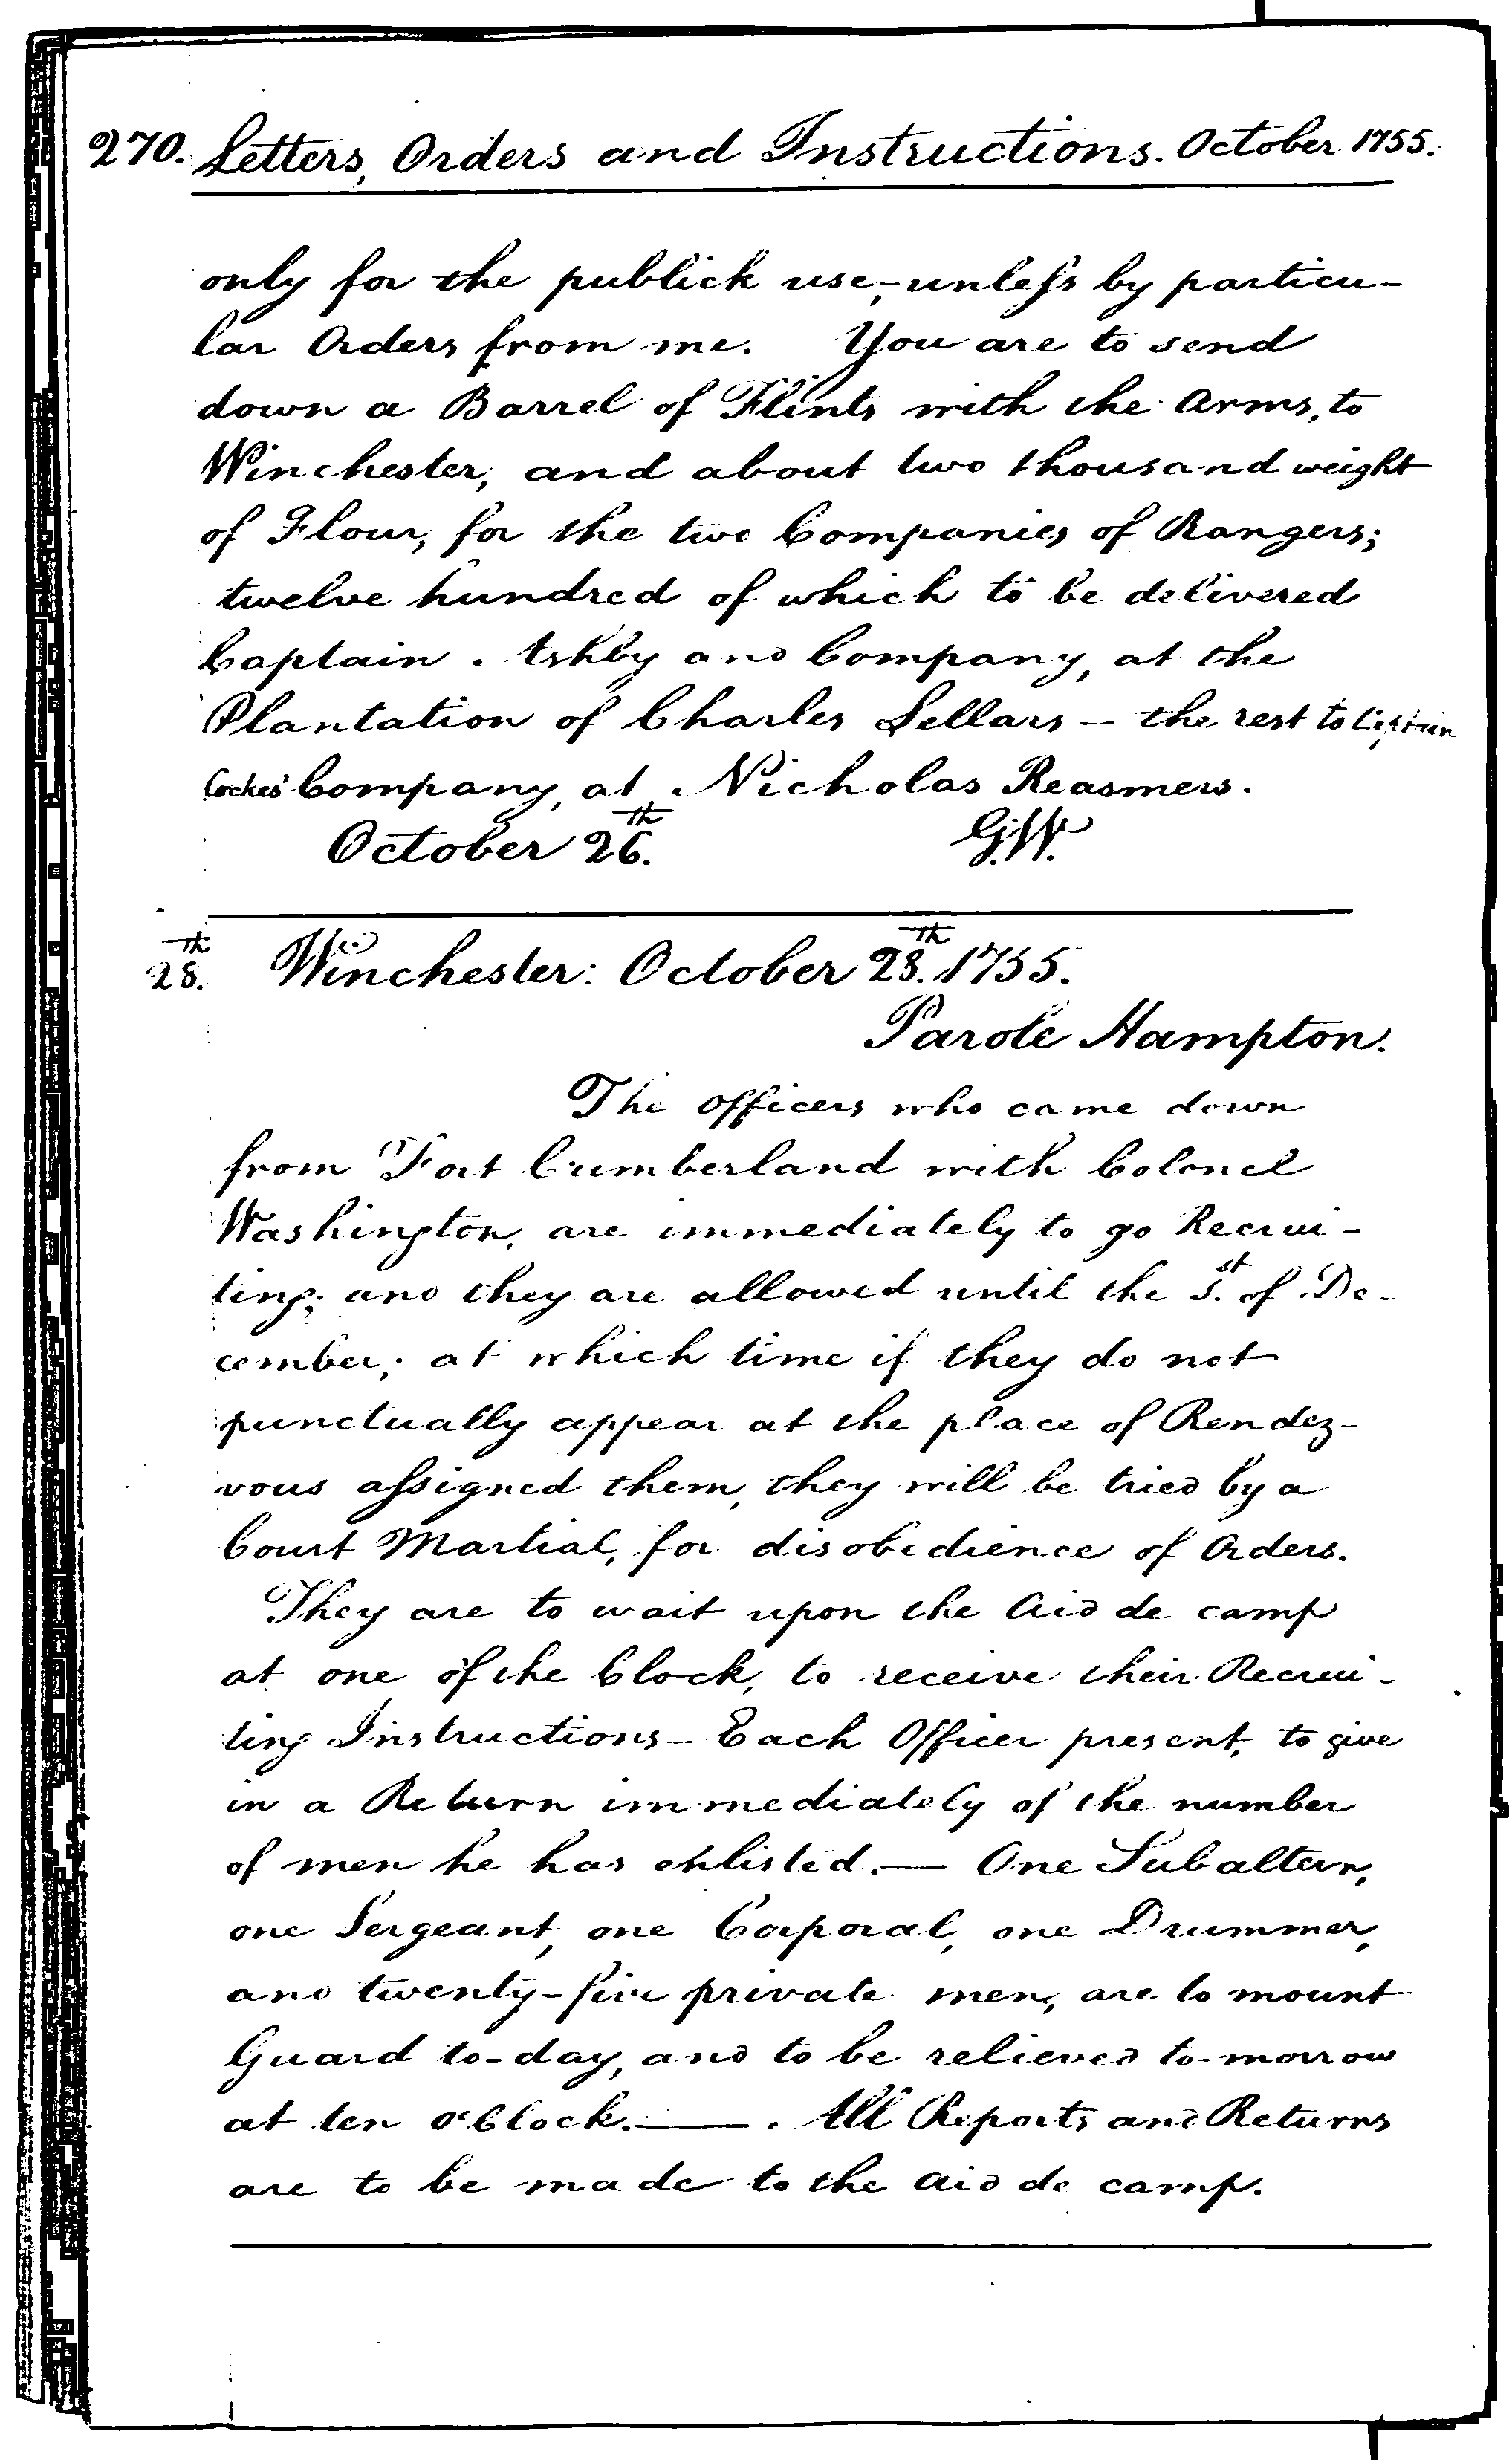 270. Letters, Orders and Instructions. October 1755.
only for the publick use,-unless by particu-
lar Orders from me. You are to send
down a Barrel of Flints with the Arms, to
Winchester, and about two thousand weight
of Flour, for the two Companies of Rangers;
twelve hundred of which to be delivered
Captain Ashby and Company, at the
Plantation of Charles Sellars - the rest to Captain
Cockes' Company, at Nicholas Reasmers.
October 26th. G.W.
28th. Winchester: October 28th. 1755.
Parole Hampton.
The Officers who came down
from Fort Cumberland with Colonel
Washington, are immediately to go Recrui-
ting; and they are allowed until the 1st. of De-
cember; at which time if they do not
punctually appear at the place of Rendez-
vous assigned them, they will be tried by a
Court Martial, for disobedience of Orders.
They are to wait upon the Aid de camp
at one of the Clock, to receive their Recrui-
ting Instructions - Each Officer present, to give
in a Return immediately of the number
of men he has enlisted. — One Subaltern,
one Sergeant, one Corporal, one Drummer,
and twenty-five private men, are to mount
Guard to-day, and to be relieved to-morrow
at ten o'Clock. — . All Reports and Returns
are to be made to the Aid de camp.